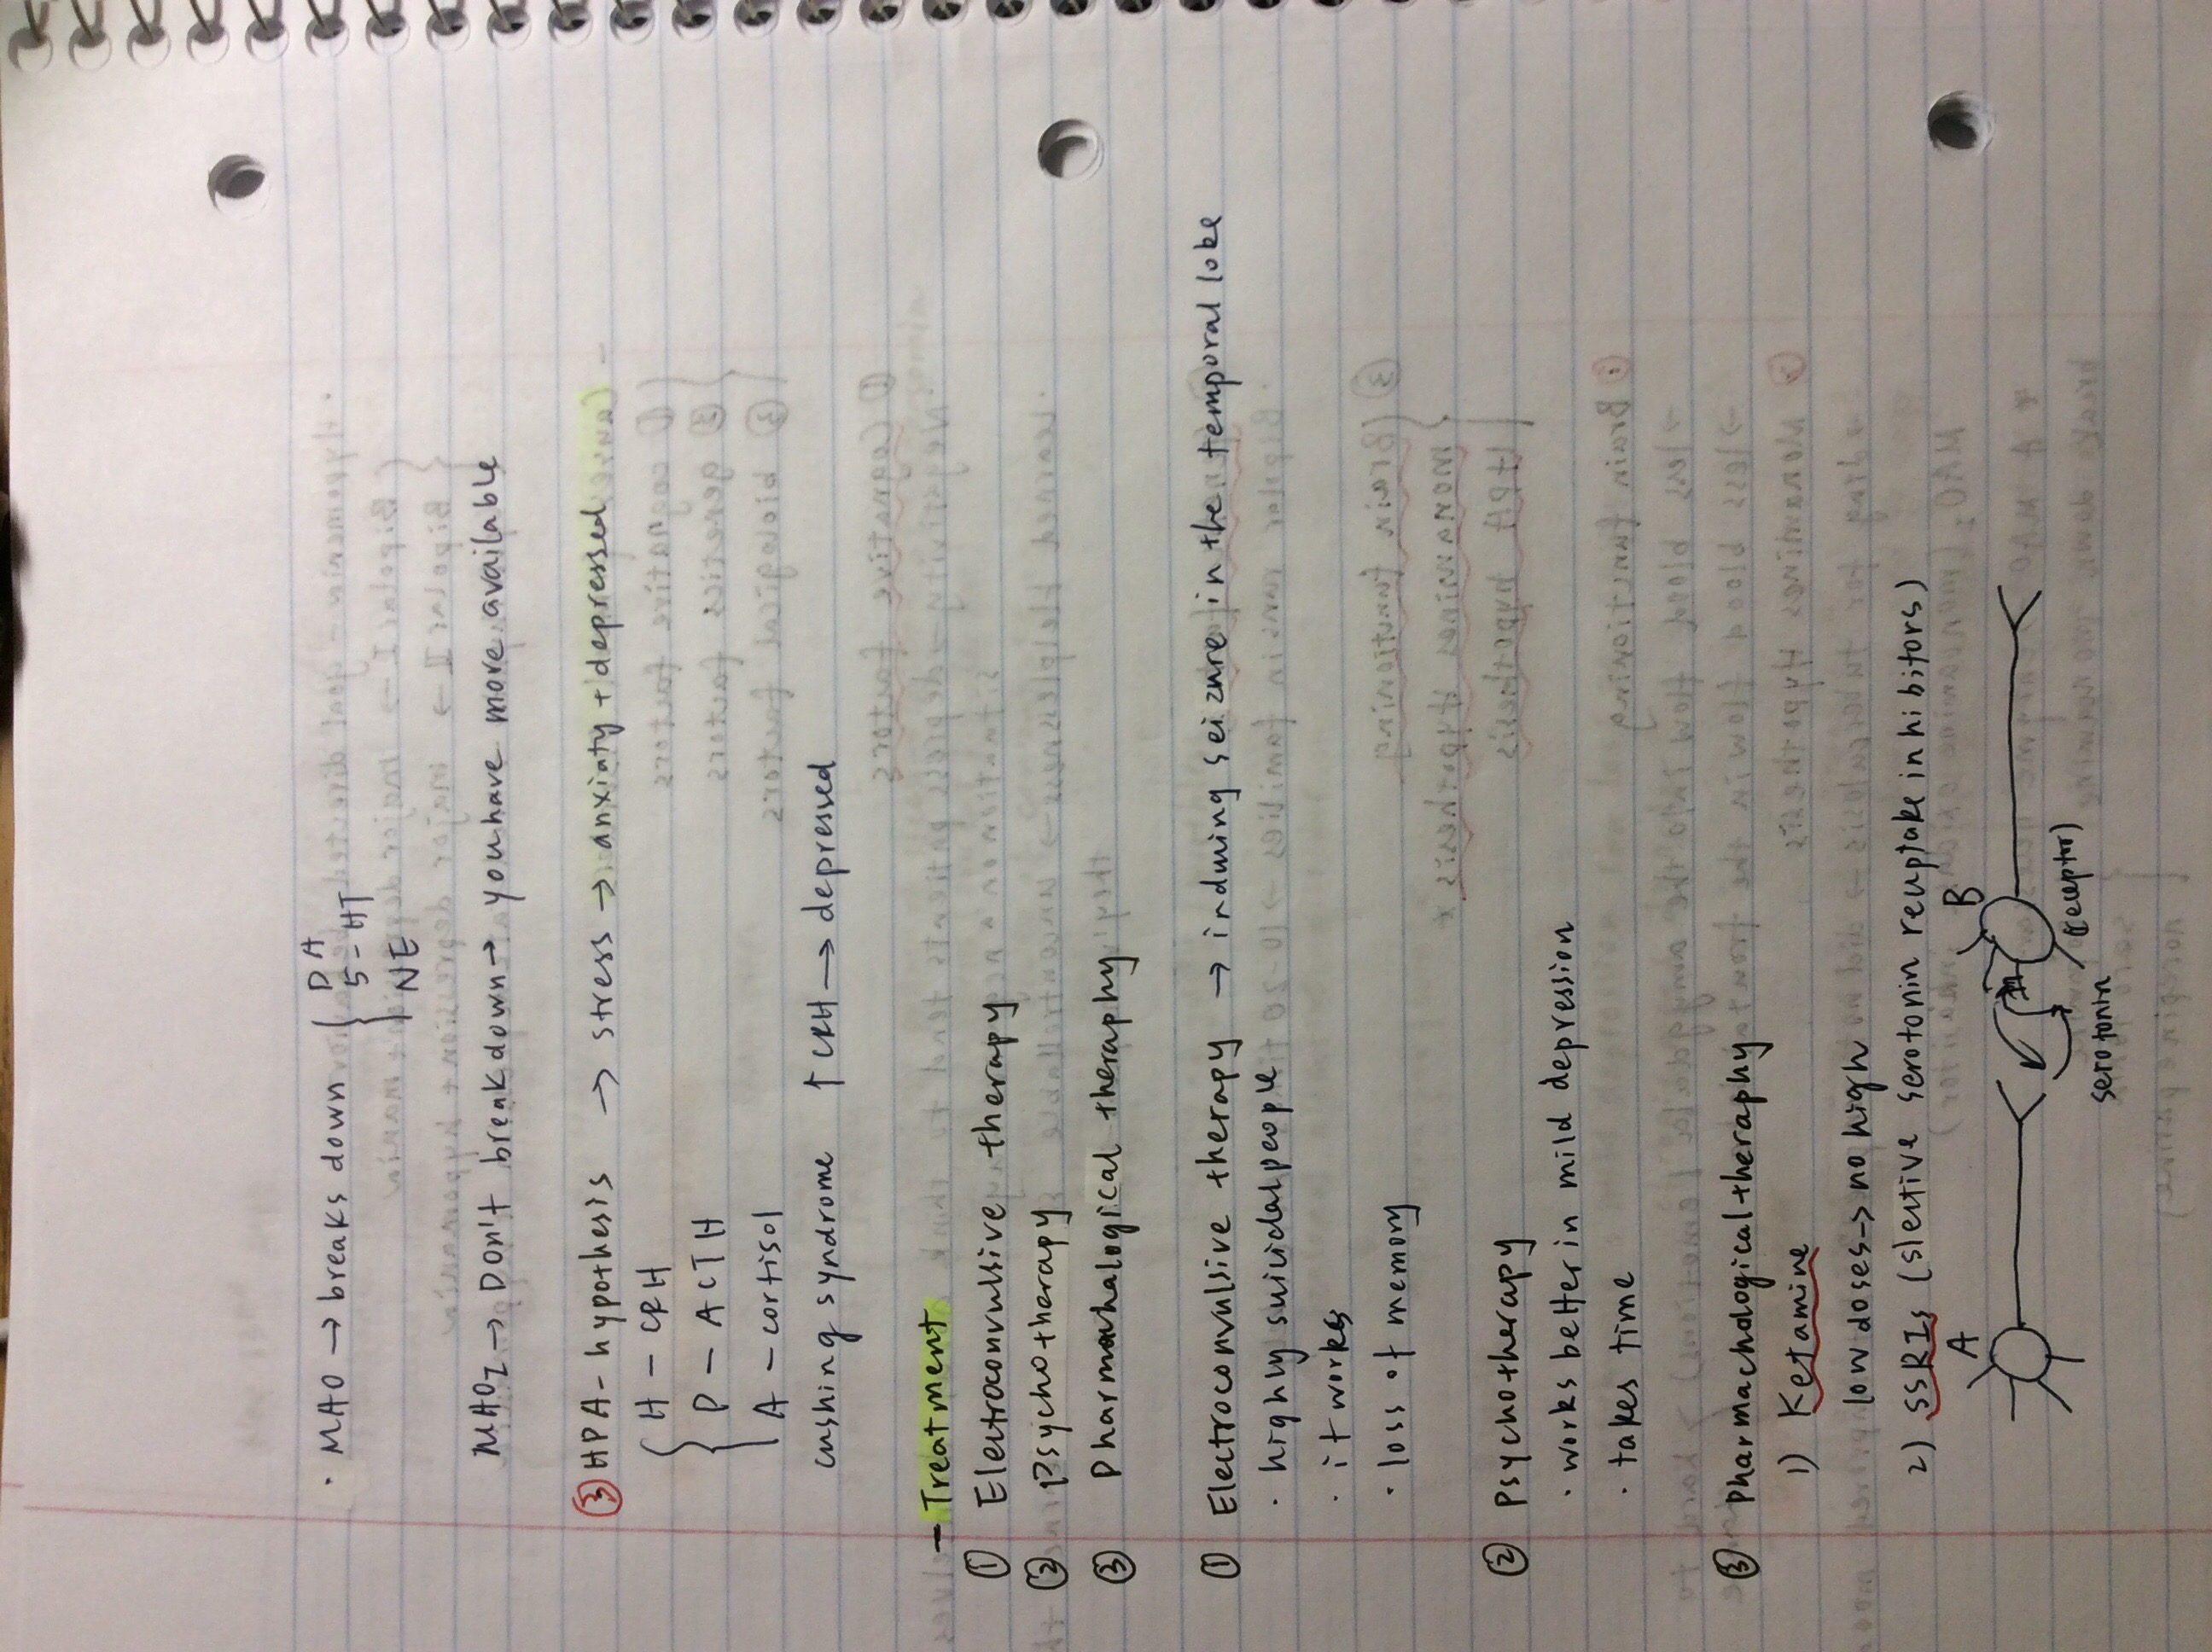 · MAO → breaks down { DA
5-HT
NE
MAOI → Don't breakdown → you have more available
③ HPA-hypothesis → stress → anxiaty + depressed
{ H - CRH
P - ACTH
A - cortisol
cushing syndrome ↑CRH → depressed
- Treatment
① Electroconvulsive therapy
② Psychotherapy
③ Pharmahalogical theraphy
① Electroconvulsive therapy → inducing seizure in the temporal lobe
· highly suicidal people
· it works
· loss of memory
② Psychotherapy
· works better in mild depression
· takes time
③ Pharmachological theraphy
1) Ketamine
low doses → no high
2) SSRIs (sletive serotonin reuptake inhibitors)
A B
receptor)
serotonin